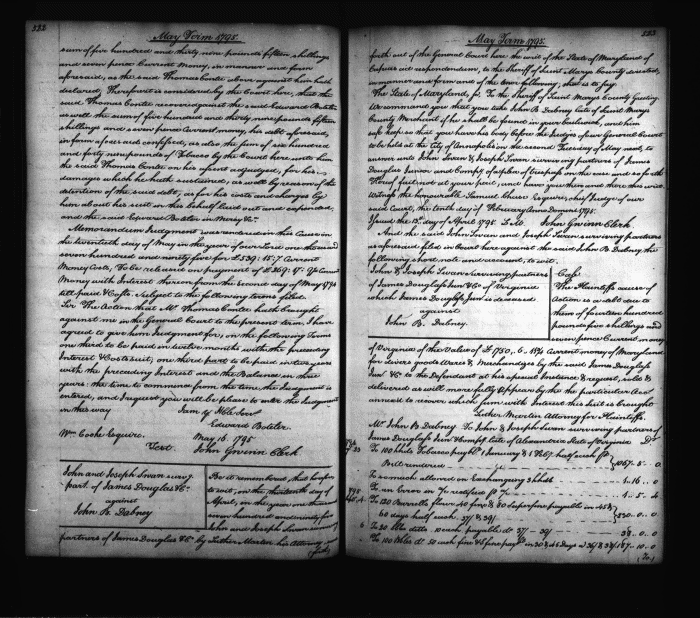 222
May Term 1795.
sum of five hundred and thirty nine pounds fifteen shillings
and seven pence Current Money, in manner and form
aforesaid, as the said Thomas Contee above against him hath
declared, Therefore it is considered by the Court here, that the
said Thomas Contee recover against the said Edward Boteler
as well the sum of five hundred and thirty nine pounds fifteen
shillings and seven pence Current money, his debt aforesaid,
in form aforesaid confessed, as also the sum of six hundred
and forty nine pounds of Tobacco by the Court here unto him
the said Thomas Contee on his assent adjudged, for his
damages which he hath sustained, as well by reason of the
detention of the said debt, as for his costs and charges by
him about his suit in this behalf laid out and expended,
and the said Edward Boteler in Mercy &c.
Memorandum Judgment was rendered in this Cause on
the twentieth day of May in the year of our Lord one thousand
seven hundred and ninety five for £539:15:7 Current
Money Costs, To be released on payment of £269:17:9½ Current
Money with Interest thereon from the second day of May 1794
till paid & Costs. Subject to the following terms filed.
Sir The Action that Mr Thomas Contee hath brought
against me in the General Court to the present term, I have
agreed to give him Judgment for, on the following Terms
one third to be paid in twelve months with the preceding
Interest & Costs suit, one third part to be paid in two years
with the preceding Interest and the Balance in three
years, the time to commence from the time the Judgment is
entered, and I request you will be please to enter the Judgment
in this way
I am yr Hble Servt
Edward Boteler.
Wm Cooke Esquire. May 16. 1795
Test. John Gwinn Clerk
John and Joseph Swan surving
part. of James Douglas & Co.
against
John B Dabney
Be it remembered that heretofore
to wit, on the thirteenth day of
April, in the year one thousand
seven hundred and ninety five
John and Joseph Swan surviving
partners of James Douglas & Co. by Luther Martin his Attorney sued
223
May Term 1795.
forth out of the General Court here the writ of the State of Maryland of
Capias ad respondendum, to the Sheriff of Saint Marys County directed,
in manner and form and of the tenor following, that is to say.
The State of Maryland, ss. To the Sheriff of Saint Marys County Greeting
We command you that you take John B. Dabney late of Saint Marys
County Merchant if he shall be found in your bailiwick, and him
safe keep so that you have his body before the Judges of our General Court
to be held at the City of Annapolis on the second Tuesday of May next, to
answer unto John Swan & Joseph Swan surviving partners of James
Douglas Junior and Compy of a plea of trespass on the case and so forth
Hereof fail not at your peril, and have you then and there this writ.
Witness the honourable Samuel Chase Esquire, chief Judge of our
said Court, the tenth day of February Anno Domini 1795.
Issued the 13th day of April 1795. John Gwinn Clerk
And the said John Swan and Joseph Swan surviving partners
as aforesaid filed in Court here against the said John B Dabney, the
following short note and account, to wit.
John & Joseph Swan surviving partners
of James Douglass Junr & Co of Virginia
which James Douglass Junr is deceased
against
John B. Dabney.
Case
The Plaintiffs cause of
Action is a debt due to
them of fourteen hundred
pounds five shillings and
seven pence Current money
of Virginia of the Value of £1750..6..11¾ Current money of Maryland
for divers goods Wares & Merchandizes by the said James Douglass
Junr & Co to the Defendant at his special Instance & request, sold &
delivered as will more fully appear by the particular Accot
annexed to recover which sum with Interest this suit is brought
Luther Martin Attorney for Plaintiffs.
Mr John B Dabney. To John & Joseph Swan surviving partners of
James Douglass Junr & Compy late of Alexandria State of Virginia Dr.